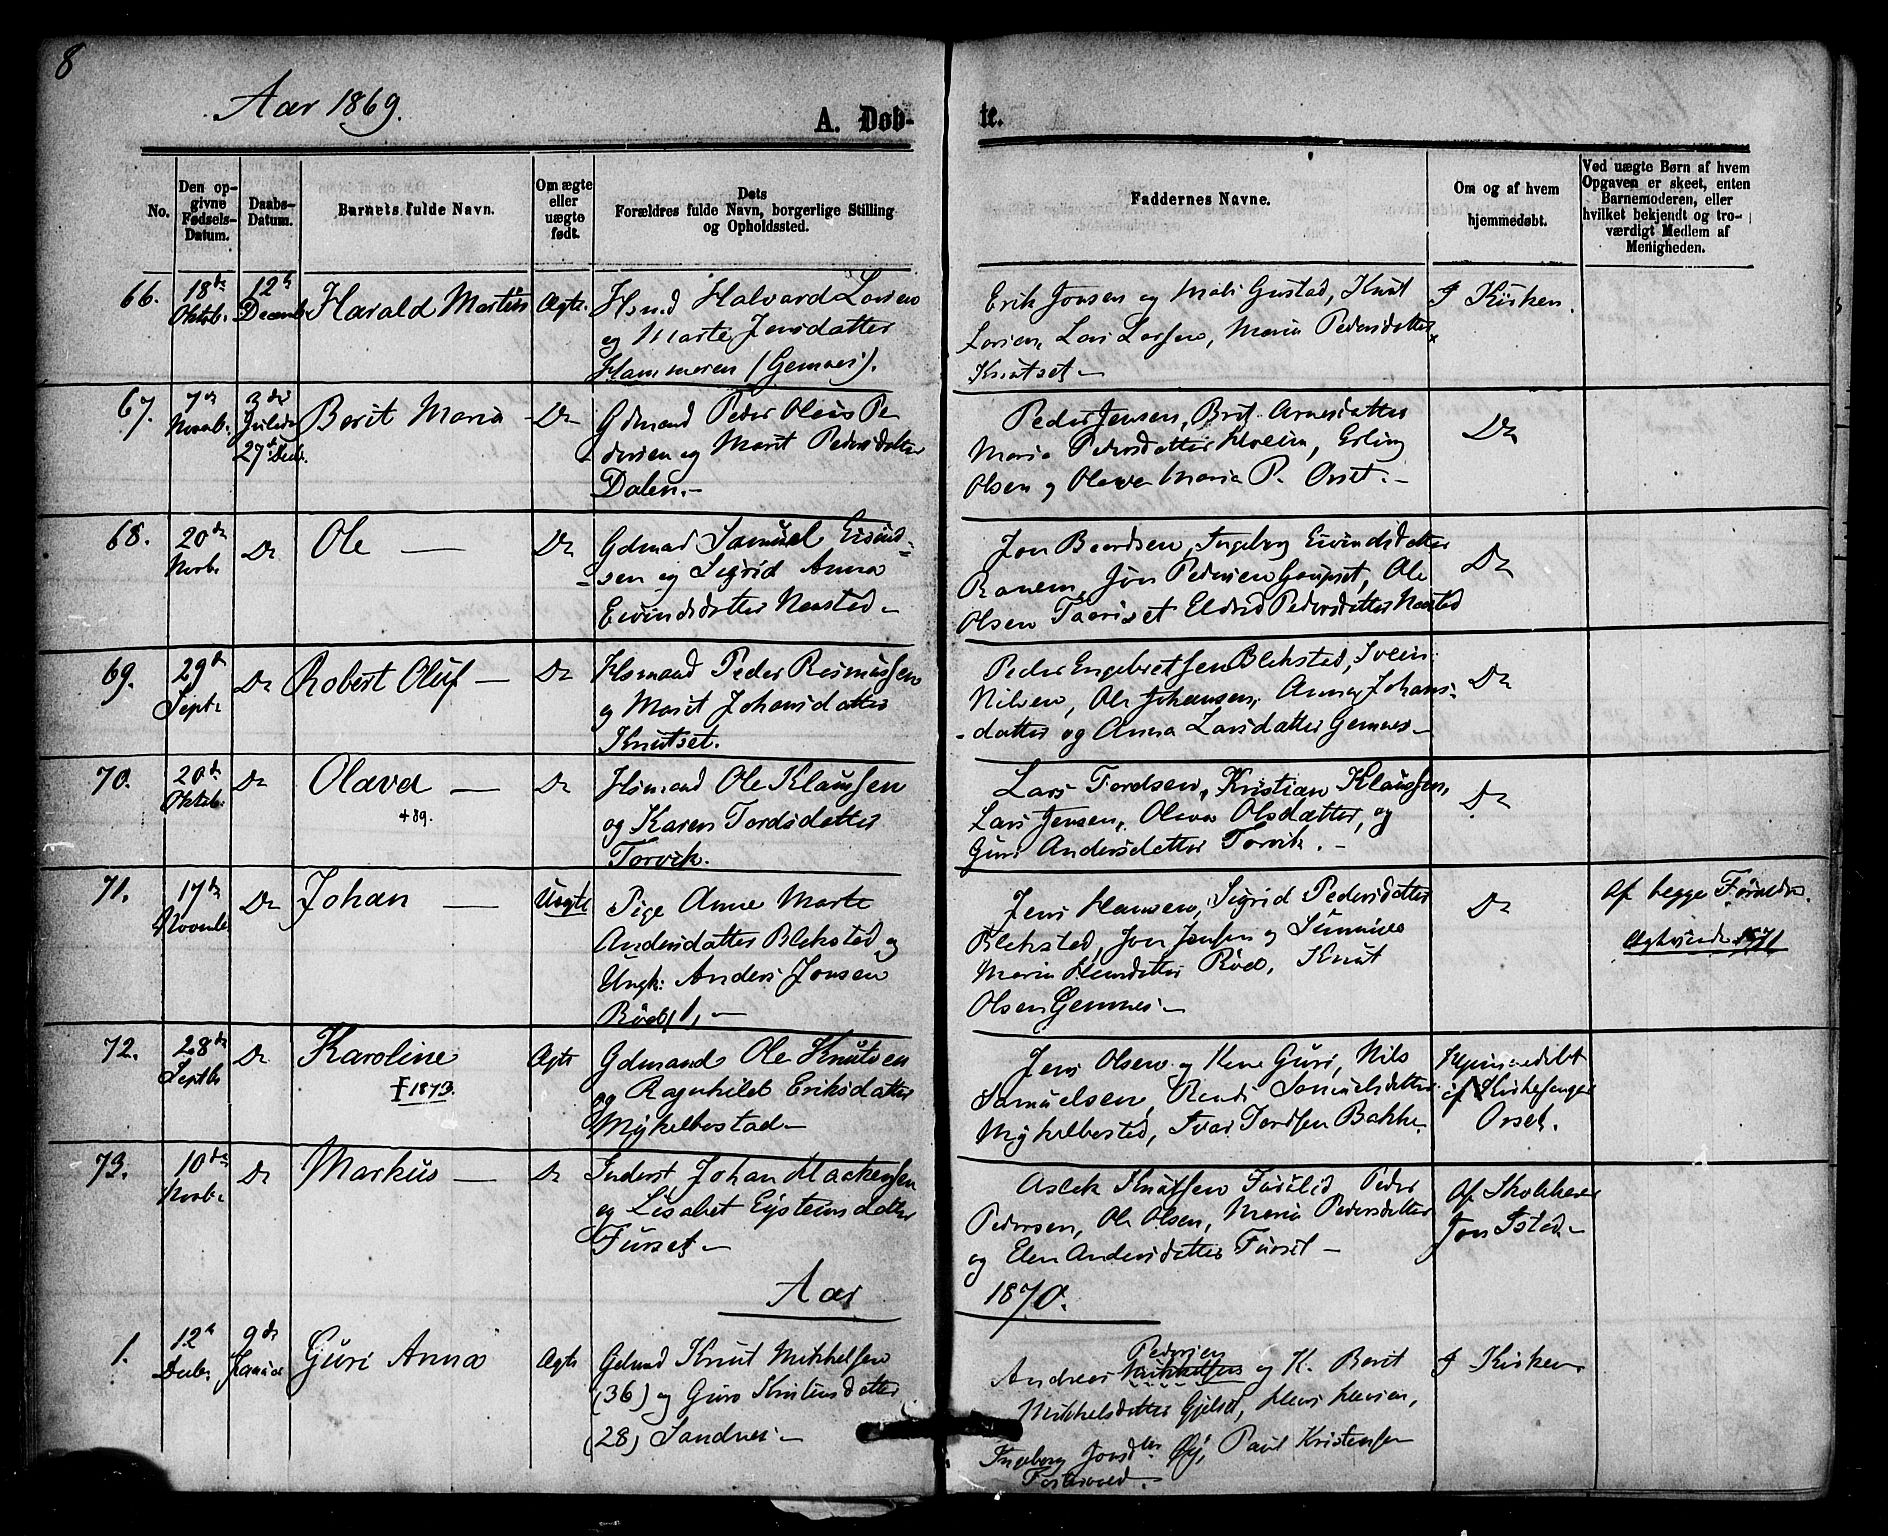 8
Aar 1869.
A. Døb-
te.
No.
Den op-
givne
Fødsels-
Datum.
Daabs-
Datum.
Barnets fulde Navn.
Om ægte
eller
uægte
født.
Dets
Forældres fulde Navn, borgerlige Stilling
og Opholdssted.
Faddernes Navne.
Om og af hvem
hjemmedøbt.
Ved uægte Børn af hvem
Opgaven er skeet, enten
Barnemoderen, eller
hvilket bekjendt og tro-
værdigt Medlem af
Menigheden.
66.
18de
Oktob.
12te
Decemb.
Harald Martin
Ægte.
Hsmd Halvard Larsen
og Marte Jensdatter
Hammeren (Gemnes).
Erik Jonsen og Mali Gustad, Knut
Larsen, Lars Larsen, Maria Pedersdatter
Knutset -
I Kirken.
67.
7de
Novb.
3die
Juledag
27de Decb.
Berit Maria
Do
Gdmand Peder Olaus Pe
dersen og Marit Pedersdatter
Dalen. -
Peder Jensen, Brit Arnesdatter
Maria Pedersdatter Kleven, Erling
Olsen og Olava Maria P. Orset. -
Do
68.
20de
Novb.
Do
Ole -
Do
Gdmand Samuel Eivind-
sen og Sigrid Anna
Eivindsdatter Naastad -
Jon Baardsen, Ingebog Eivindsdatter
Ranem, Jon Pedersen Gaupset, Ole
Olsen Taariset Eldrid Pedersdatter Naastad
Do
69.
29de
Septb.
Do
Robert Oluf -
Do
Hsmand Peder Rasmussen
og Marit Johansdatter
Knutset.
Peder Engebretsen Blekstad, Svein
Nilsen, Ole Johansen, Anna Johans-
datter og Anna Larsdatter Gemnes -
Do
70.
20de
Oktob.
Do
Olava -
+89.
Do
Hsmand Ole Klaussen
og Karen Tordsdatter
Torvik.
Lars Tordsen, Kristian Klaussen,
Lars Jensen, Olava Olsdatter, og
Guri Andersdatter Torvik. -
Do
71.
17de
Novemb.
Do
Johan -
Uægte
Pige Anne Marte
Andersdatter Blekstad og
Ungk: Anders Jonsen
Rød, 1, -
Jens Hansen, Sigrid Pedersdatter
Blekstad, Jon Jensen og Sunniva
Maria Hansdatter Rød, Knut
Olsen Gemnes -
Do
Af begge Forældre.
Ægteviede 1871
72.
28de
Septb.
Do
Karoline
†1873.
Ægte
Gdmand Ole Knutsen
og Ragnhild Eriksdatter
Mykelbostad -
Jens Olsen og Kone Guri, Nils
Samuelsen, Randi Samuelsdatter
Mykelbostad, Ivar Tordsen Bakke.
Hjemmedøbt
af Kirkesanger
Orset.
73.
10de
Novb.
Do
Markus -
Do
Inderst Johan Mackensen
og Lisabet Eysteinsdatter
Furset -
Aslak Knutsen Furulid Peder
Pedersen, Ole Olsen, Maria Pedersdatter
og Elen Andersdatter Furset -
Af Skolelærer
Jon Istad -
Aar
1870.
1.
12te
Decbr.
9de
Januar
Guri Anna
Ægte
Gdmd Knut Mikkelsen
(36) og Guro Kristensdatter
(28) Sandnes -
Andreas Mikkelsen Pedersen og K. Berit
Mikkelsdatter Gjelset,
Ingeborg Jonsdtr. Øy, Paul Kristensen
I Kirken.